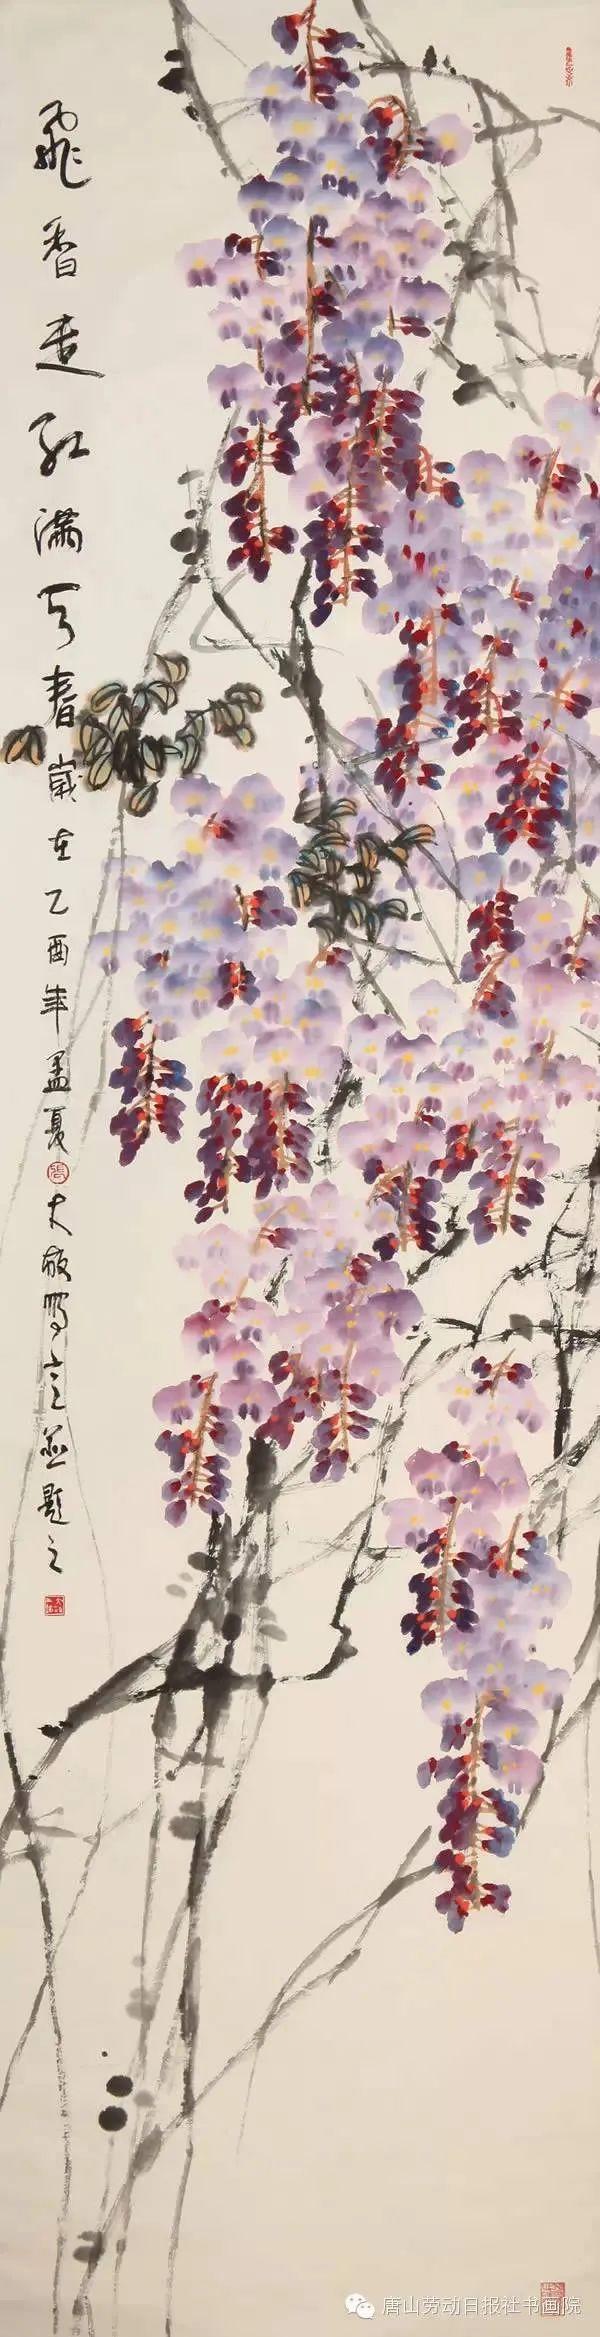 飛香走红满天春歲在乙酉年孟夏
大敬寫意並題之
唐山劳动日报社书画院